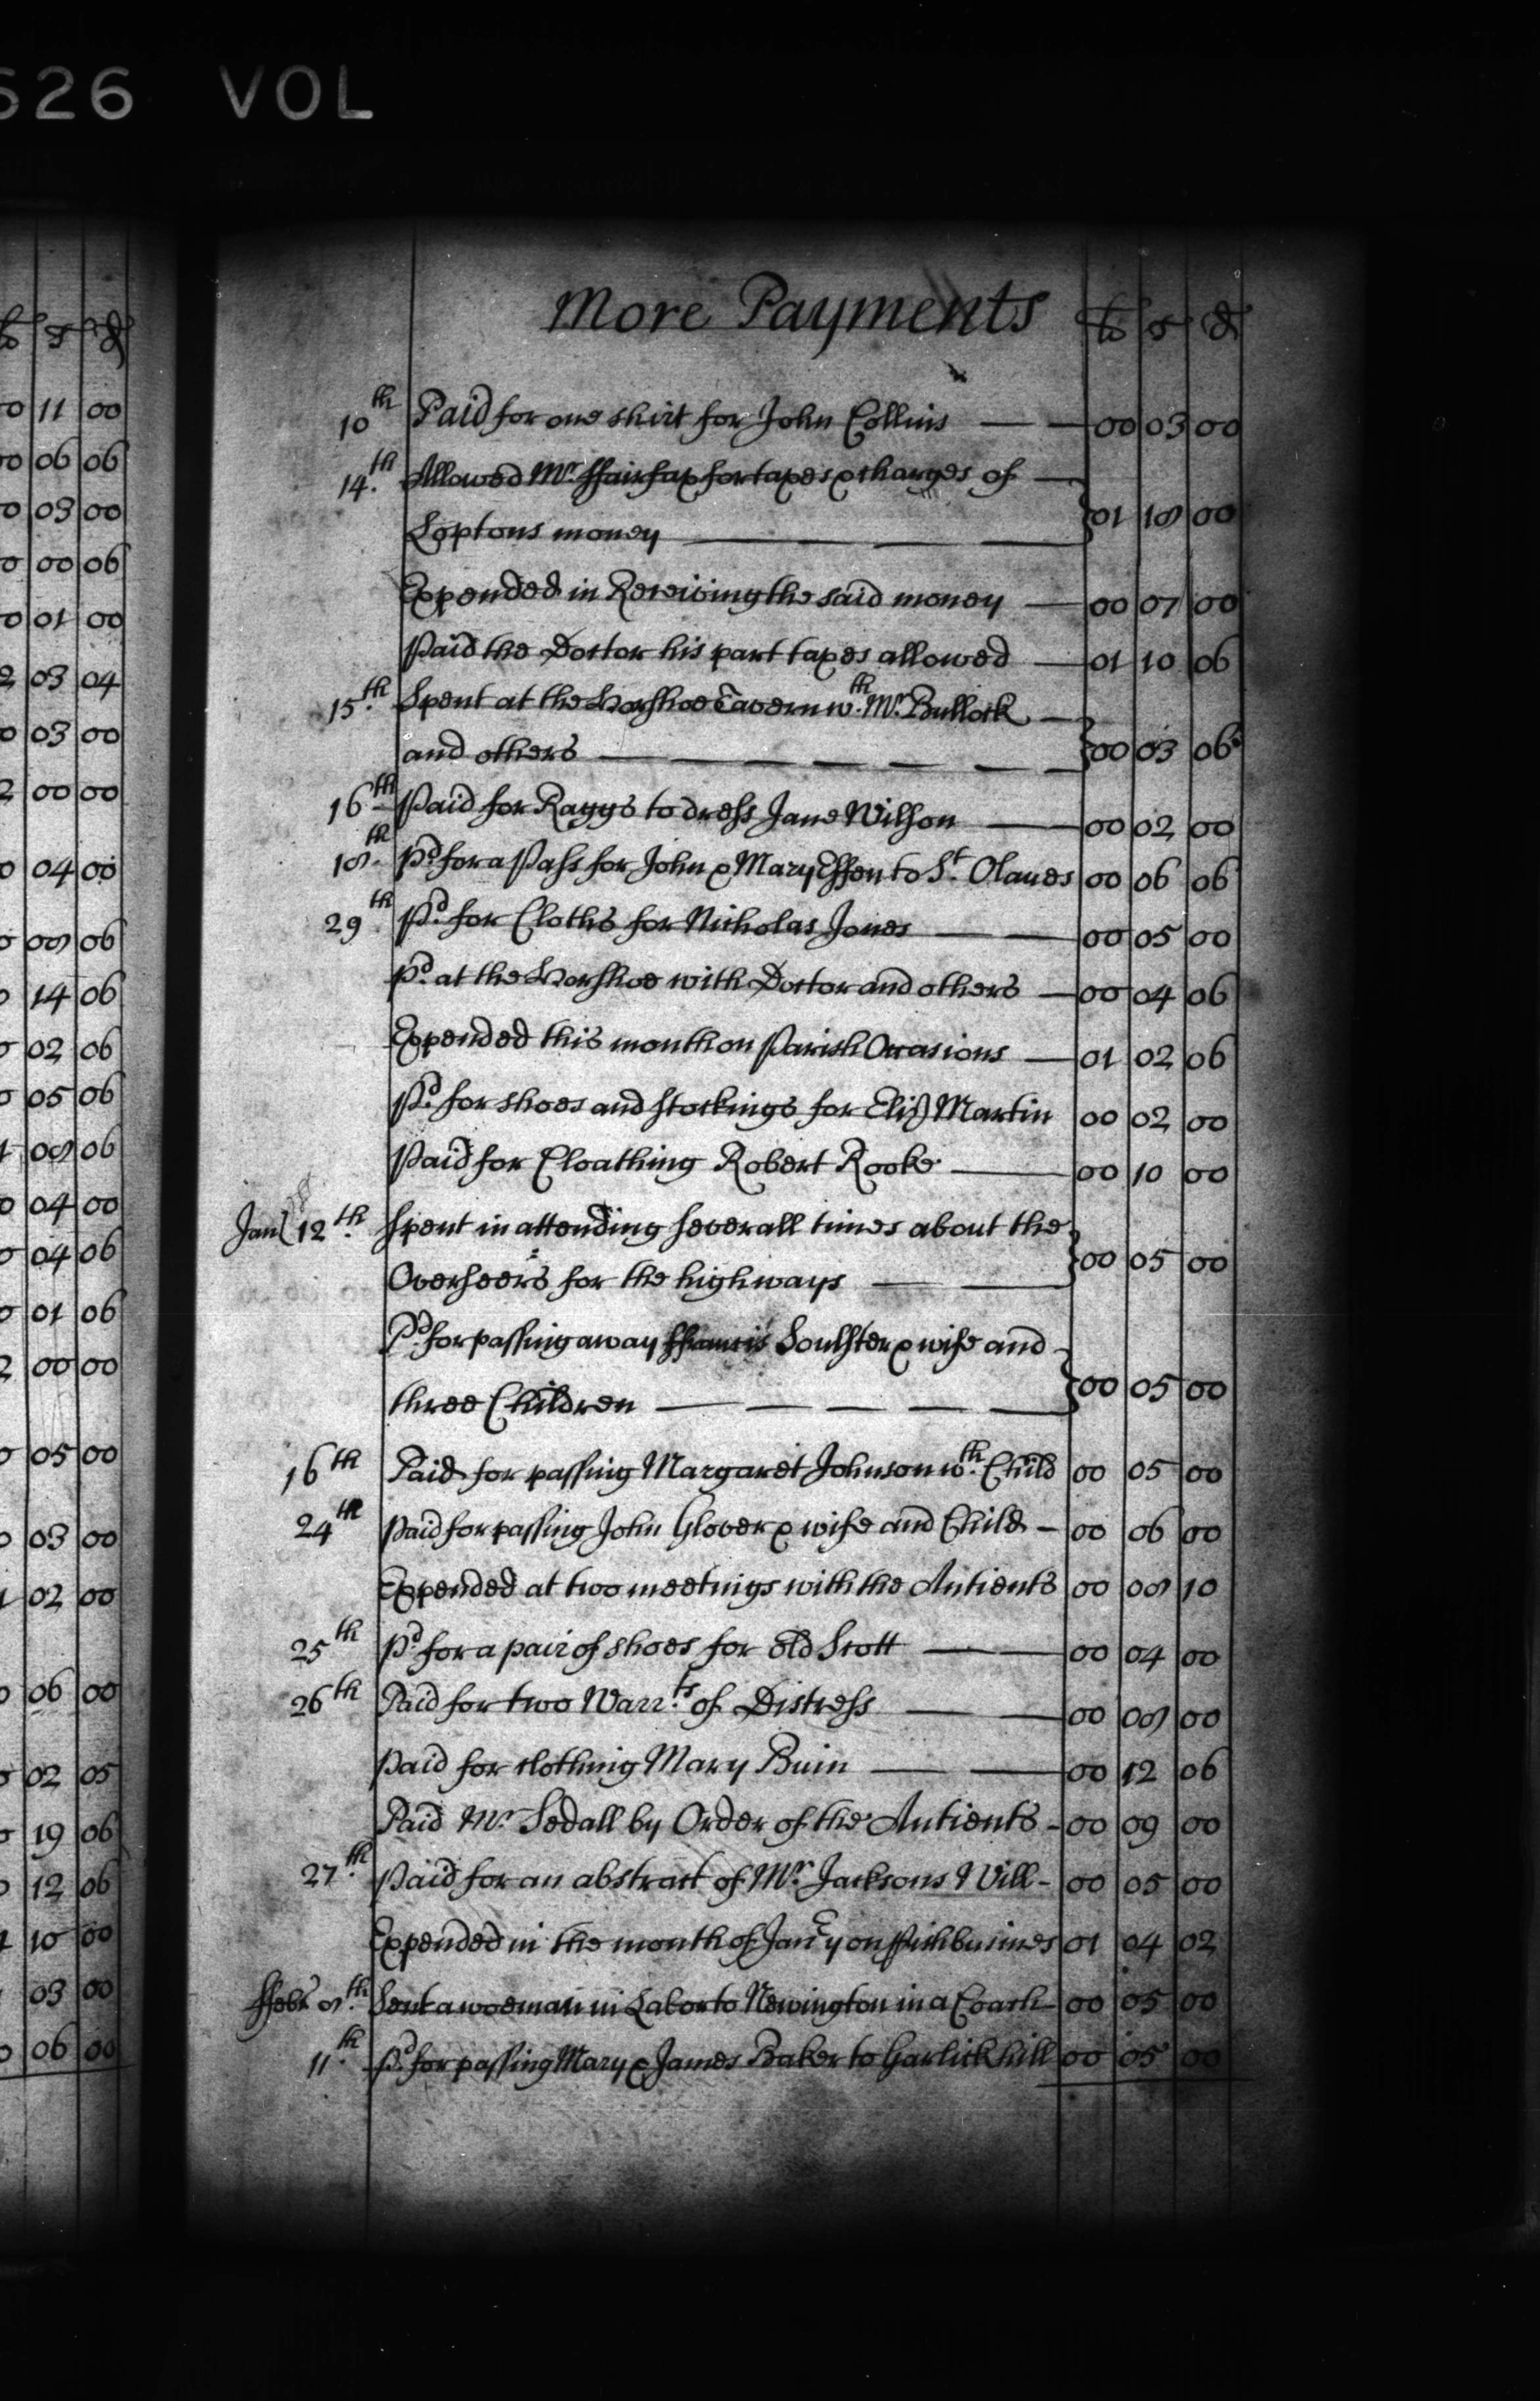 626 VOL
More Payments lb s d
10th Paid for one shirt for John Collins — — 00 03 00
14th Allowed Mr ffairfax for taxes & charges of —
Loptons money — — — 01 18 00
Expended in Receiving the said money — 00 07 00
Paid the Doctor his part taxes allowed — 01 10 06
15th Spent at the Horshoe Tavern wth Mr Bullock —
and others — — — — — — — 00 03 06
16th Paid for Raggs to dress Jane Wilson — 00 02 00
18th Pd for a Pass for John & Mary to St Olaves 00 06 06
29th Pd for Cloths for Nicholas Jones — — 00 05 00
Pd at the Horshoe with Doctor and others — 00 04 06
Expended this month on Parish Occasions — 01 02 06
Pd for shoes and stockings for Eliz Martin 00 02 00
Paid for Cloathing Robert Rooke — 00 10 00
Jan 12th Spent in attending severall times about the
Overseers for the highways — — 00 05 00
Pd for passing away ffrancis Soulster & wife and
three Children — — — — — 00 05 00
16th Paid for passing Margaret Johnson wth Child 00 05 00
24th Paid for passing John Glover & wife and Child — 00 06 00
Expended at two meetings with the Antients 00 08 10
25th Pd for a pair of shoes for old Scott — — 00 04 00
26th Paid for two Warrts of Distress — — 00 08 00
Paid for clothing Mary Buin — — 00 12 06
Paid Mr Sedall by Order of the Antients - 00 09 00
27th Paid for an abstract of Mr Jacksons Will - 00 05 00
Expended in the month of Janry on Pish busines 01 04 02
ffebr 8th Sent a woeman in Labor to Newington in a Coach 00 05 00
11th Pd for passing Mary & James Baker to Garlick hill 00 05 00
lb s d
11 00
06 06
03 00
00 06
01 00
03 04
03 00
00 00
04 00
08 06
14 06
02 06
05 06
08 06
04 00
04 06
01 06
00 00
05 00
03 00
02 00
06 00
02 05
19 06
12 06
10 00
03 00
06 00